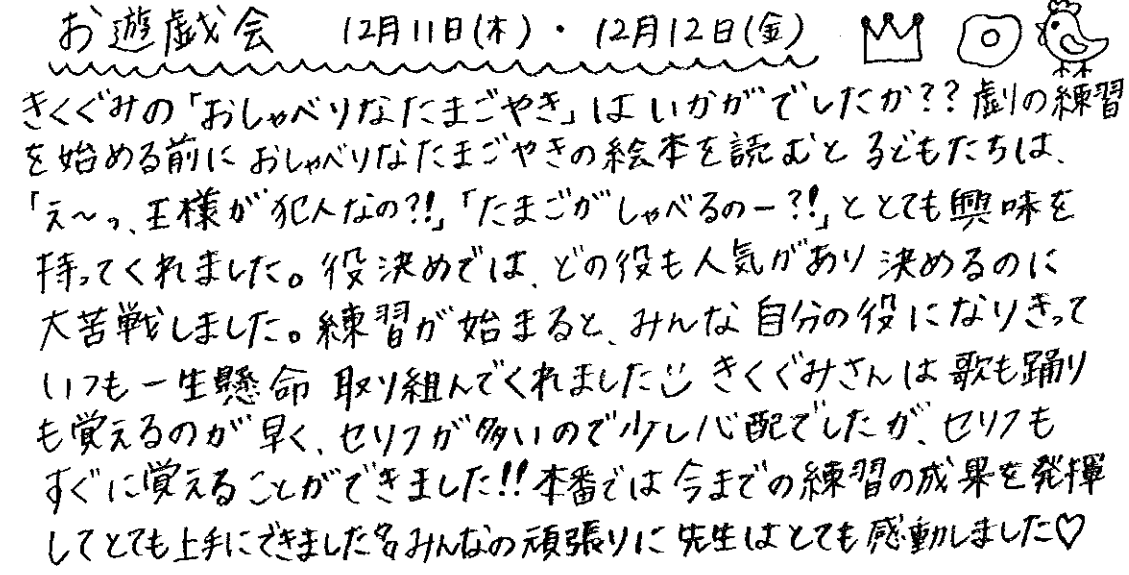 お遊戯会　12月11日(木)・12月12日(金)
きくぐみの「おしゃべりなたまごやき」はいかがでしたか??劇の練習
を始める前におしゃべりなたまごやきの絵本を読むと子どもたちは、
「え〜っ、王様が犯人なの?!」「たまごがしゃべるのー?!」ととても興味を
持ってくれました。役決めでは、どの役も人気があり決めるのに
大苦戦しました。練習が始まると、みんな自分の役になりきって
いつも一生懸命取り組んでくれました きくぐみさんは歌も踊り
も覚えるのが早く、セリフが多いので少し心配でしたが、セリフも
すぐに覚えることができました!!本番では今までの練習の成果を発揮
してとても上手にできました みんなの頑張りに先生はとても感動しました♡